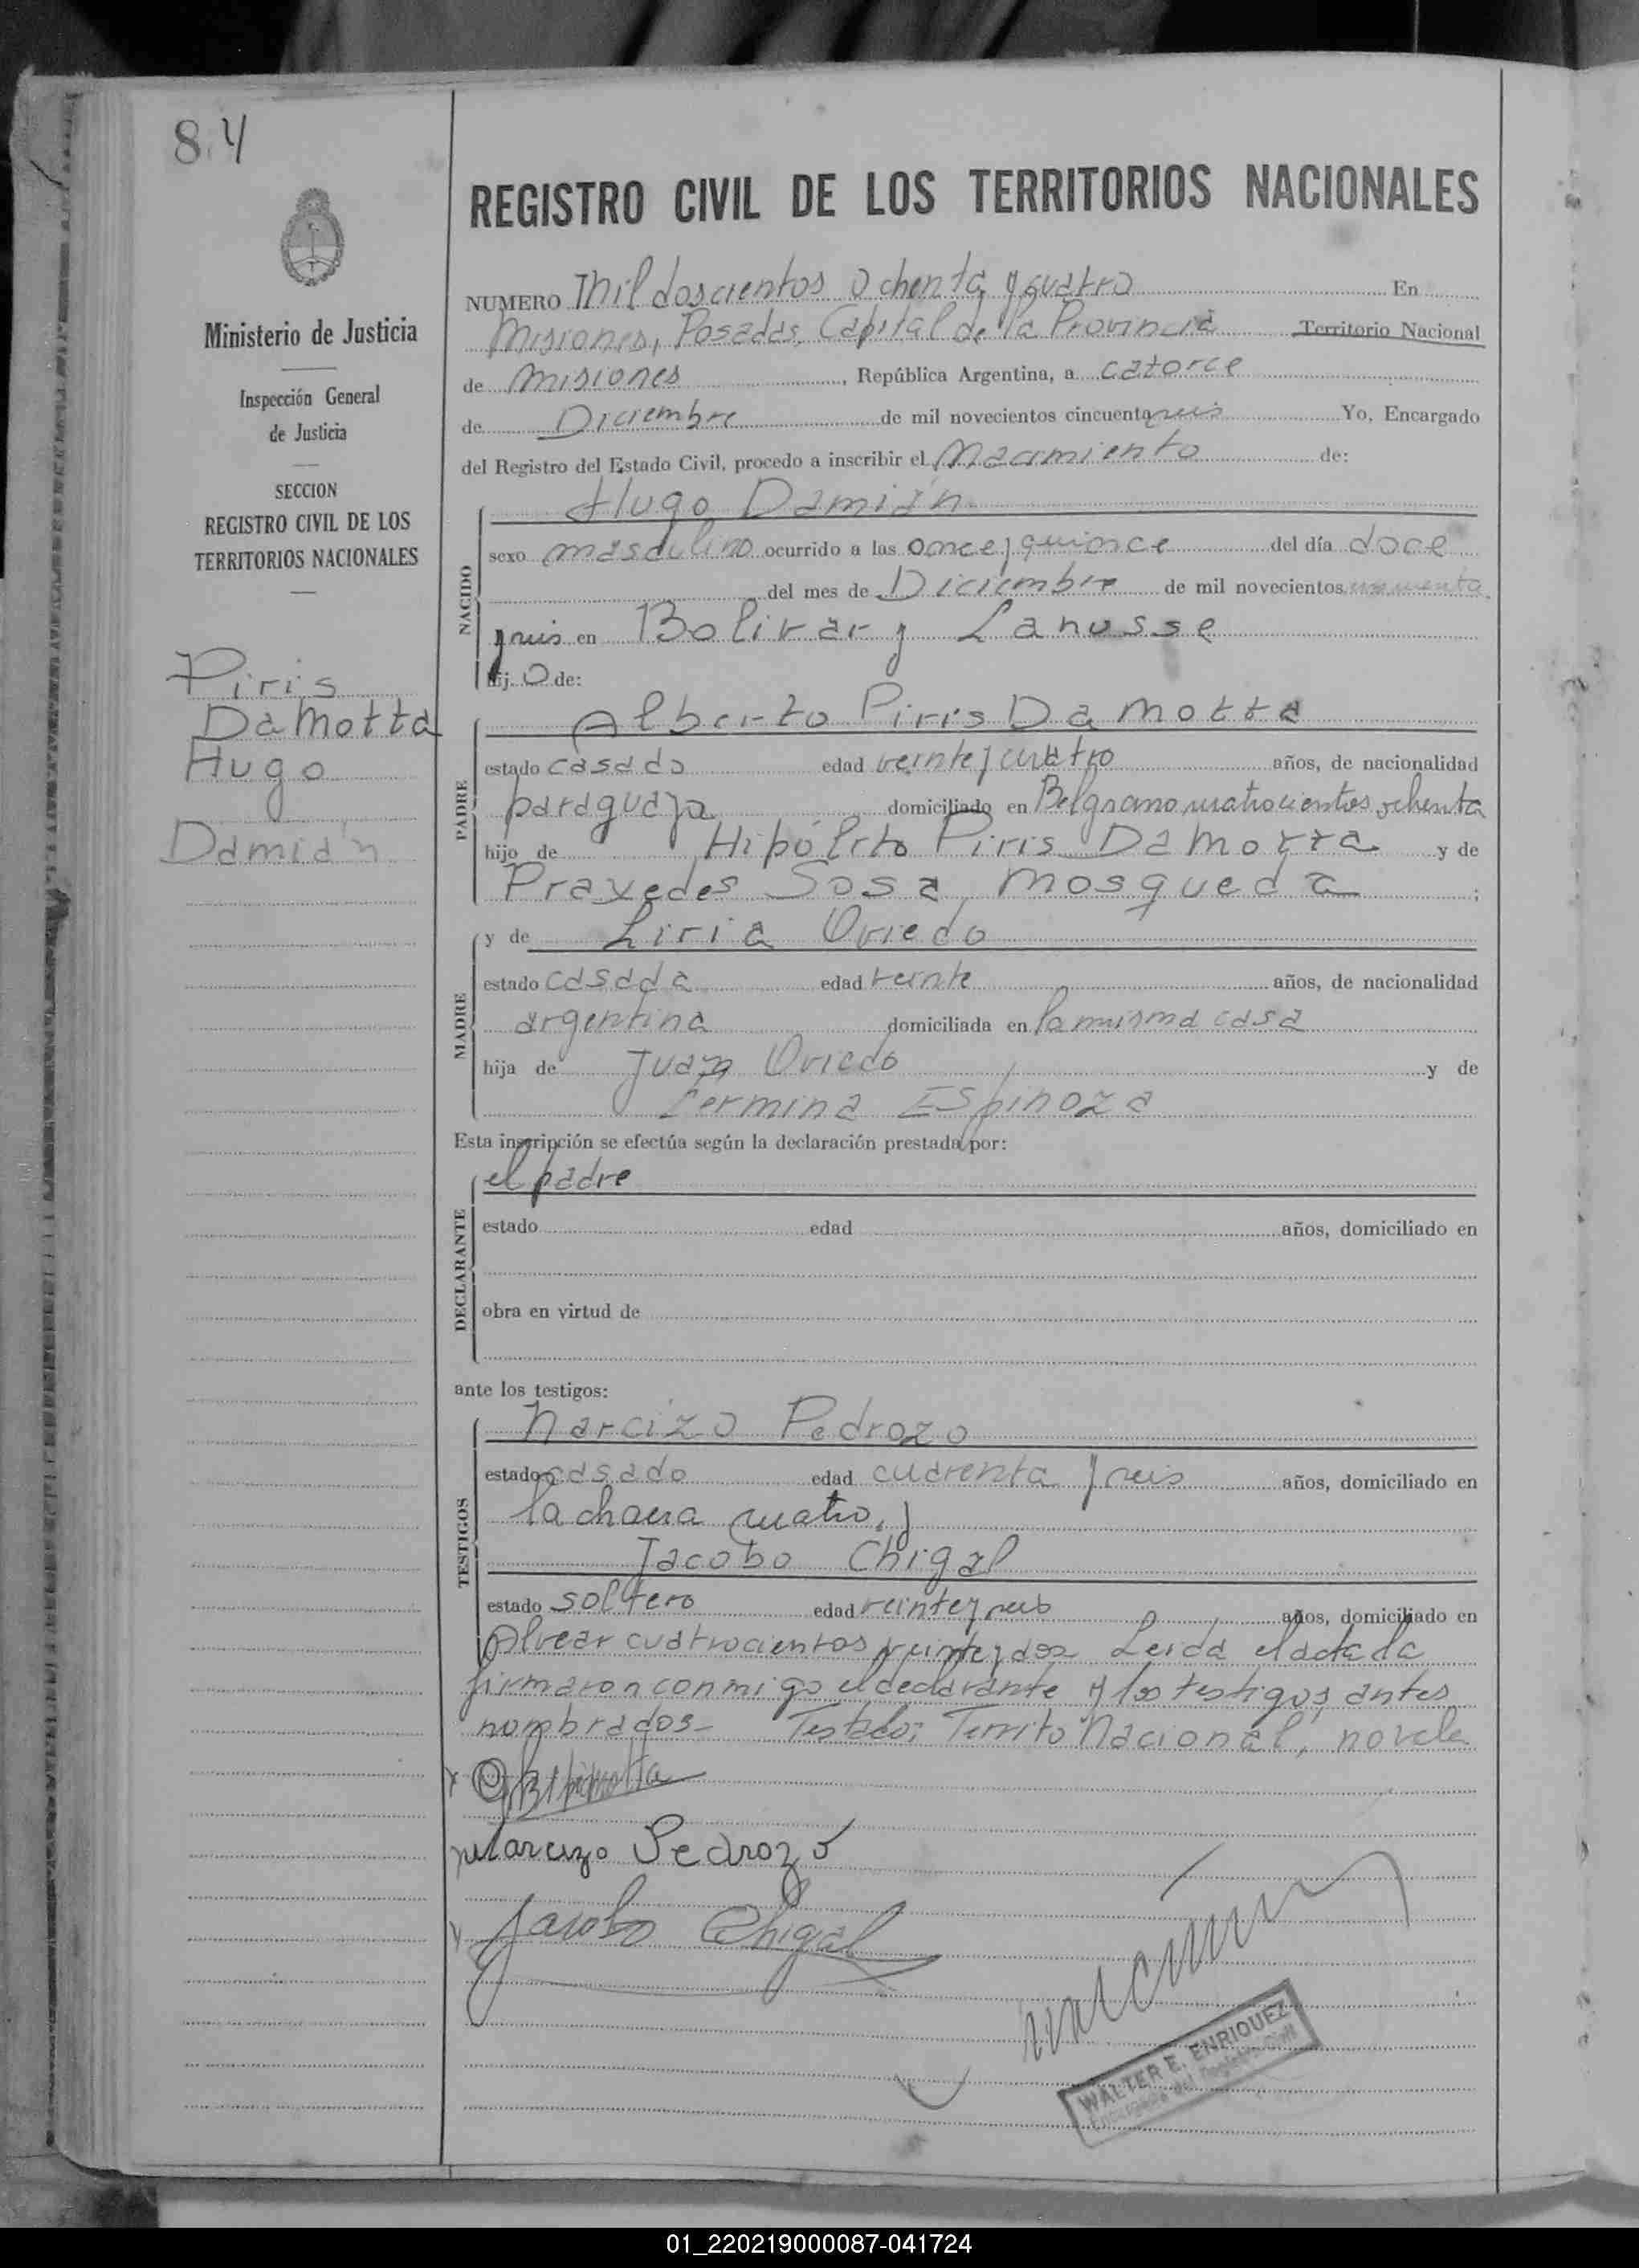 8.4
Ministerio de Justicia
Inspección General
de Justicia
SECCION
REGISTRO CIVIL DE LOS
TERRITORIOS NACIONALES
Piris
Da Motta
Hugo
Damián
REGISTRO CIVIL DE LOS TERRITORIOS NACIONALES
NUMERO Mil doscientos ochenta y cuatro En
Misiones, Posadas, Capital de la Provincia Territorio Nacional
de Misiones, República Argentina, a catorce
de Diciembre de mil novecientos cincuenta y seis Yo, Encargado
del Registro del Estado Civil, procedo a inscribir el Nacimiento de:
NACIDO
Hugo Damián
sexo masculino ocurrido a las once y quince del día doce
del mes de Diciembre de mil novecientos cincuenta
y seis en Bolivar y Lanusse
hij o de:
PADRE
Alberto Piris Da Motta
estado casado edad veinte y cuatro años, de nacionalidad
paraguaya domiciliado en Belgrano cuatrocientos ochenta
hijo de Hipólito Piris Da Motta y de
Praxedes Sosa Mosqueda ;
MADRE
y de Liria Oviedo
estado casada edad veinte años, de nacionalidad
argentina domiciliada en la misma casa
hija de Juan Oviedo y de
Fermina Espinoza
Esta inscripción se efectúa según la declaración prestada por:
DECLARANTE
el padre
estado edad años, domiciliado en
obra en virtud de
ante los testigos:
TESTIGOS
Narcizo Pedrozo
estado casado edad cuarenta y seis años, domiciliado en
la chacra cuatro, y
Jacobo Chigal
estado soltero edad veinte y seis años, domiciliado en
Alvear cuatrocientos veinte y dos Leida el acta la
firmaron conmigo el declarante y los testigos antes
nombrados- Testado: Territo Nacional, no vale
Narcizo Pedrozo
Jacobo Chigal
WALTER E. ENRIQUEZ
Encargado del Registro Civil
01_220219000087-041724